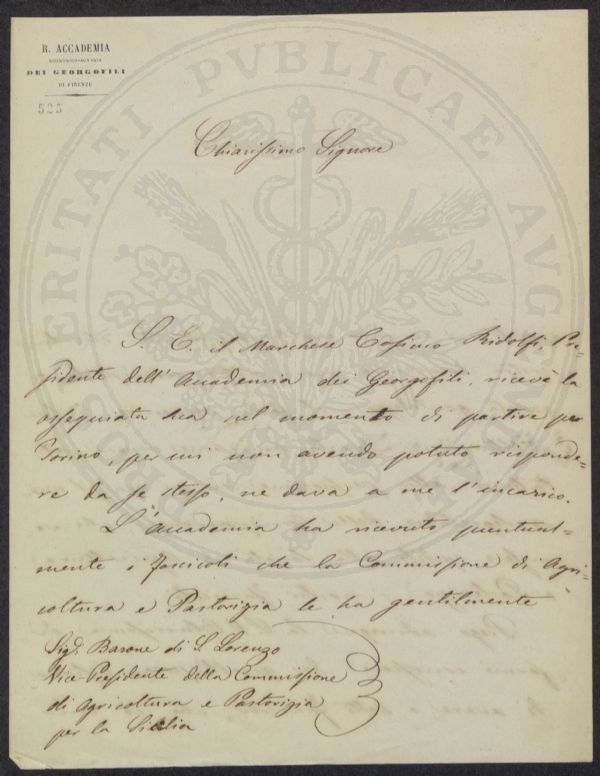 R. ACCADEMIA
ECONOMICO-AGRARIA
DEI GEORGOFILI
DI FIRENZE
525
Chiarissimo Signore
S. E. il Marchese Cosimo Ridolfi, Pre-
sidente dell'Accademia dei Georgofili, ricevè la
ossequiata sua nel momento di partire per
Torino, per cui non avendo potuto risponde-
re da se stesso, ne dava a me l'incarico.
L'Accademia ha ricevuto puntual-
mente i fascicoli che la Commissione di Agri-
coltura e Pastorizia le ha gentilmente
Sigr. Barone di S. Lorenzo
Vice-Presidente della Commissione
di Agricoltura e Pastorizia
per la Sicilia
PROSPERITATI PVBLICAE AVGENDAE